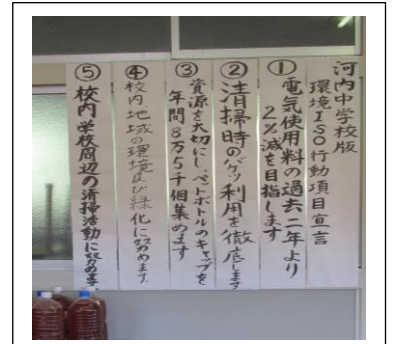 河内中学校版
環境ISO行動項目宣言
① 電気使用料の過去二年より
2%減を目指します
② 清掃時の
利用を徹底します
③ 資源を大切にし、ペットボトルのキャップを
年間8万5千個集めます
④ 校内地域の環境及び緑化に努めます。
⑤ 校内学校周辺の清掃活動に努めます。